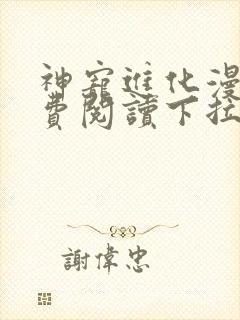 神寵進化漫
費閱讀下拉
謝偉忠